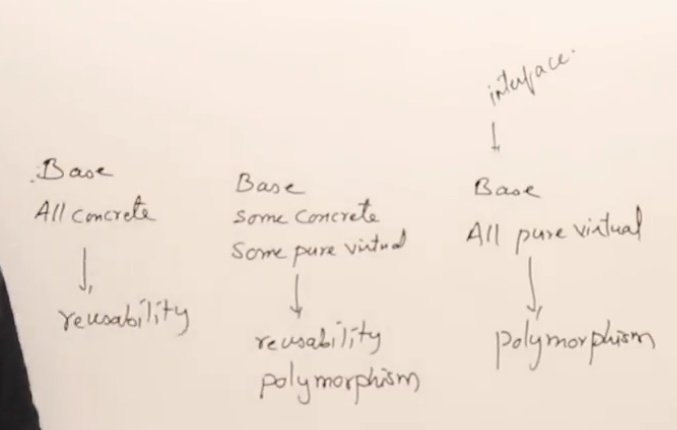 Base
All concrete
reusability
Base
Some Concrete
Some pure virtual
reusability
polymorphism
interface.
Base
All pure virtual
polymorphism